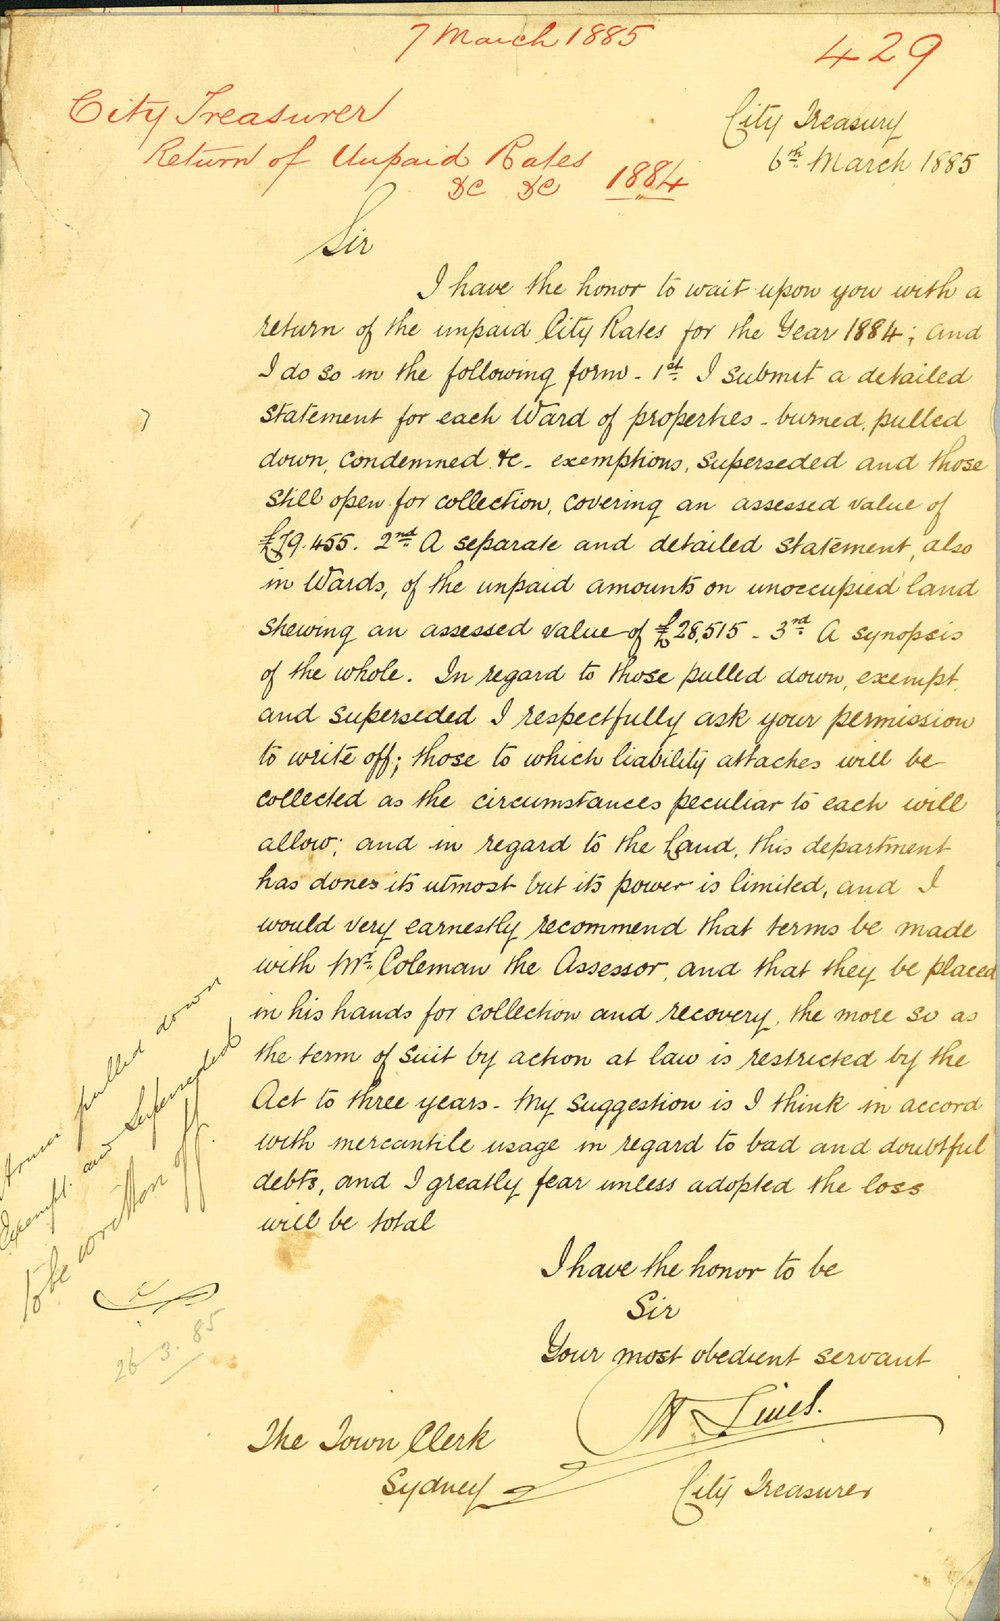 7 March 1885
429
City Treasurer
Return of Unpaid Rates
&c &c 1884
City Treasury
6th March 1885
Sir
I have the honor to wait upon you with a
return of the unpaid City Rates for the Year 1884; and
I do so in the following form - 1st. I submit a detailed
statement for each Ward of properties - burned, pulled
down, condemned &c - exemptions, superseded and those
still open for collection, covering an assessed value of
£79.455. 2nd. A separate and detailed statement, also
in Wards, of the unpaid amounts on unoccupied land
shewing an assessed value of £28,515 - 3rd. A synopsis
of the whole. In regard to those pulled down, exempt,
and superseded I respectfully ask your permission
to write off; those to which liability attaches will be
collected as the circumstances peculiar to each will
allow; and in regard to the Land, this department
has done its utmost but its power is limited, and I
would very earnestly recommend that terms be made
with Mr. Coleman the Assessor, and that they be placed
in his hands for collection and recovery, the more so as
the term of suit by action at law is restricted by the
Act to three years - My suggestion is I think in accord
with mercantile usage in regard to bad and doubtful
debts, and I greatly fear unless adopted the loss
will be total
I have the honor to be
Sir
Your most obedient servant
City Treasurer
The Town Clerk
Sydney
pulled down
Exempt and Superseded
to be written off.
26.3.85